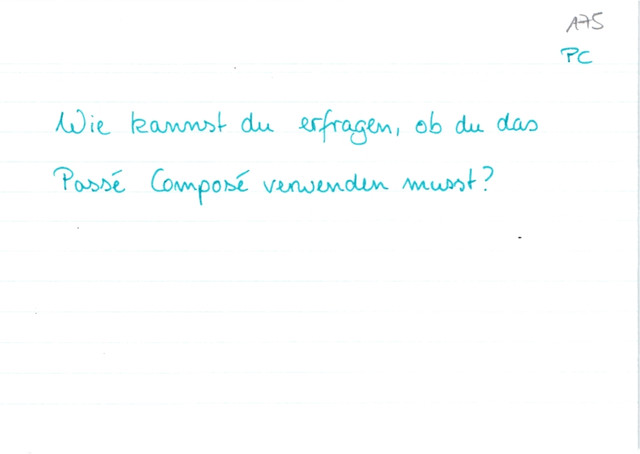 A75
PC
Wie kannst du erfragen, ob du das
Passé Composé verwenden musst?